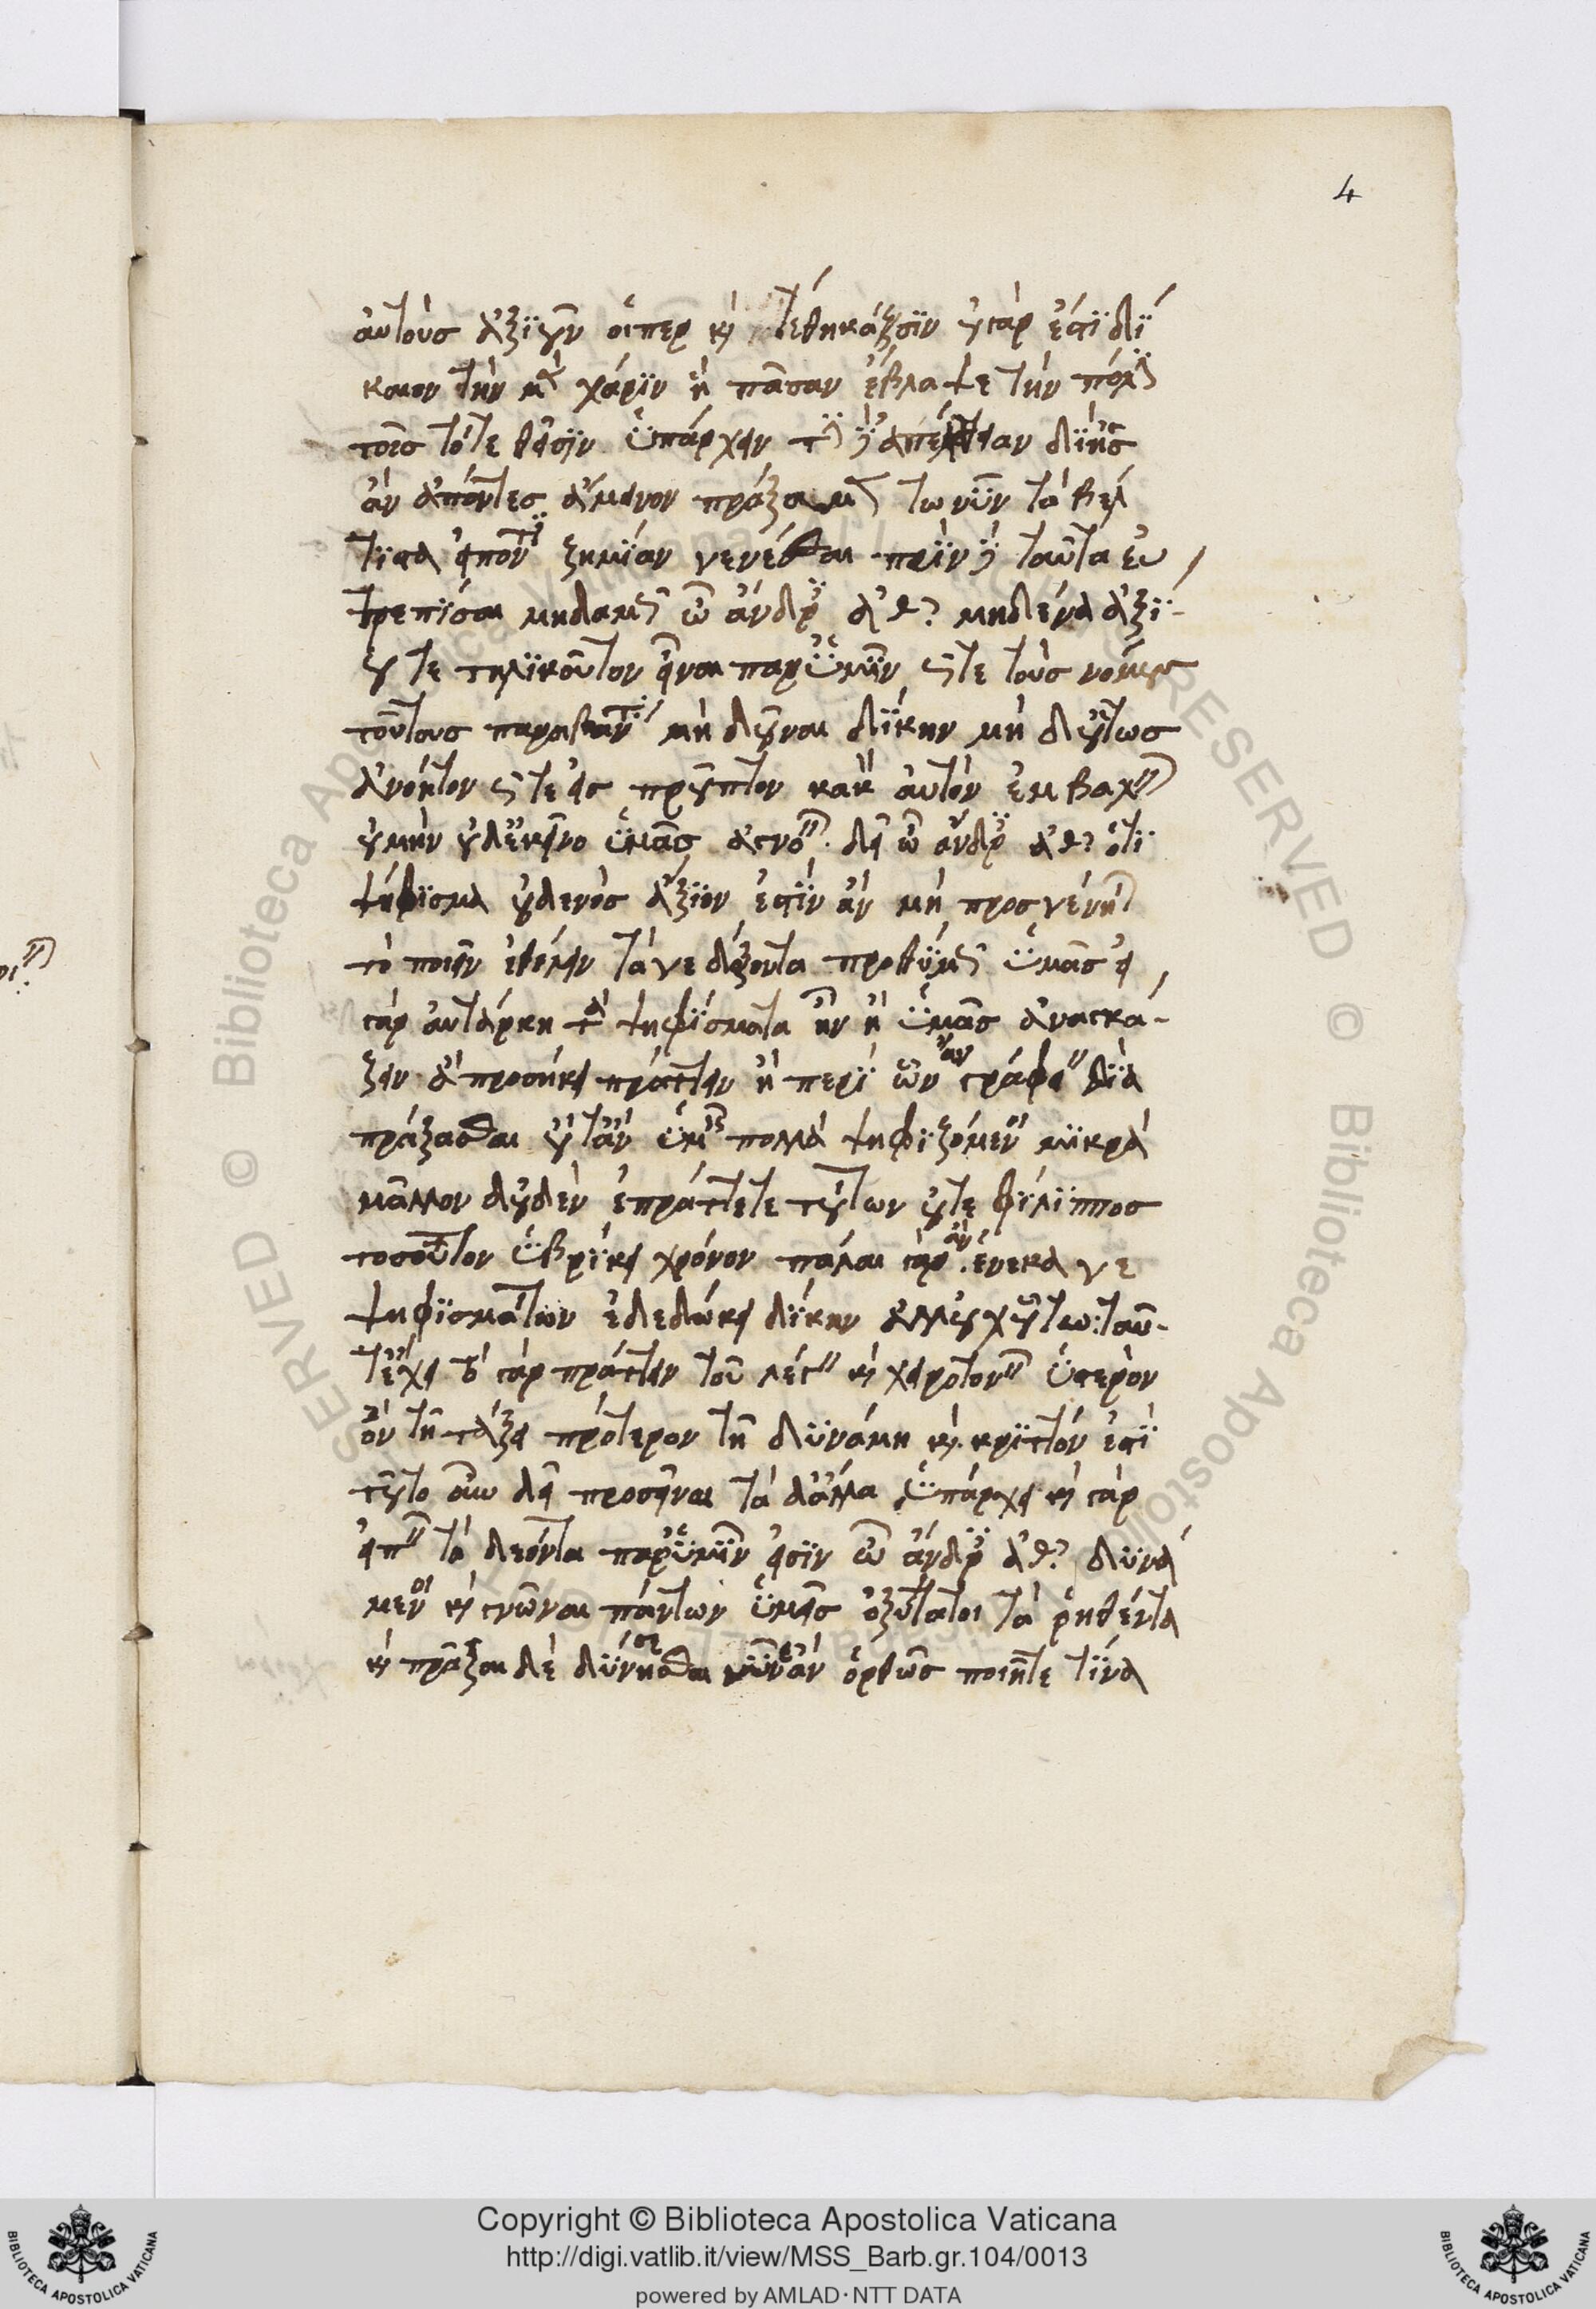 4
αὐτοὺς ἀξιοῦν οἵπερ καὶ τεθήκασιν οὐ γάρ ἐστι δί
καιον τὴν μὲν χάριν ἣ πᾶσαν ἔβλαπτε τὴν πόλιν
τοῖς τότε θεῖσιν ὑπάρχειν τὴν δ' ἀπέχθειαν δι' ἧς
ἂν ἅπαντες ἄμεινον πράξαιμεν τῷ νῦν τὰ βέλ
τιστα εἰπόντι ζημίαν γενέσθαι πρὶν δὲ ταῦτα εὐ
τρεπίσαι μηδαμῶς ὦ ἄνδρες ἀθηναῖοι μηδένα ἀξι-
οῦτε τηλικοῦτον εἶναι παρ' ὑμῖν ὥστε τοὺς νόμους
τούτους παραβάντι μὴ δοῦναι δίκην μηδ' οὕτως
ἀνόητον ὥστε εἰς προῦπτον κακὸν αὑτὸν ἐμβαλεῖν
οὐ μὴν οὐδ' ἐκεῖνο ὑμᾶς ἀγνοεῖν δεῖ ὦ ἄνδρες ἀθηναῖοι ὅτι
ψήφισμα οὐδενὸς ἄξιόν ἐστιν ἂν μὴ προσγένηται
τὸ ποιεῖν ἐθέλειν τά γε δόξαντα προθύμως ὑμᾶς εἰ
γὰρ αὐτάρκη τὰ ψηφίσματα ἦν ἢ ὑμᾶς ἀναγκά-
ζειν ἃ προσήκει πράττειν ἢ περὶ ὧν ἂν γραφείη δια
πράξασθαι οὔτ' ἂν ὑμεῖς πολλὰ ψηφιζόμενοι μικρὰ
μᾶλλον δ' οὐδὲν ἐπράττετε τούτων οὔτε φίλιππος
τοσοῦτον ὑβρίκει χρόνον πάλαι γὰρ ἂν ἕνεκά γε
ψηφισμάτων ἐδεδώκει δίκην ἀλλ' οὐχ οὕτω ταῦ-
τ' ἔχει τὸ γὰρ πράττειν τοῦ λέγειν καὶ χειροτονεῖν ὕστερον
ὂν τῇ τάξει πρότερον τῇ δυνάμει καὶ κρεῖττόν ἐστι
τοῦτο οὖν δεῖ προσεῖναι τὰ δ' ἄλλα ὑπάρχει καὶ γὰρ
εἰπεῖν τὰ δέοντα παρ' ὑμῖν εἰσιν ὦ ἄνδρες ἀθηναῖοι δυνά
μενοι καὶ γνῶναι πάντων ὑμεῖς ὀξύτατοι τὰ ῥηθέντα
καὶ πρᾶξαι δὲ δυνήσεσθαι νῦν ἐὰν ὀρθῶς ποιῆτε τίνα
Copyright © Biblioteca Apostolica Vaticana
http://digi.vatlib.it/view/MSS_Barb.gr.104/0013
powered by AMLAD·NTT DATA